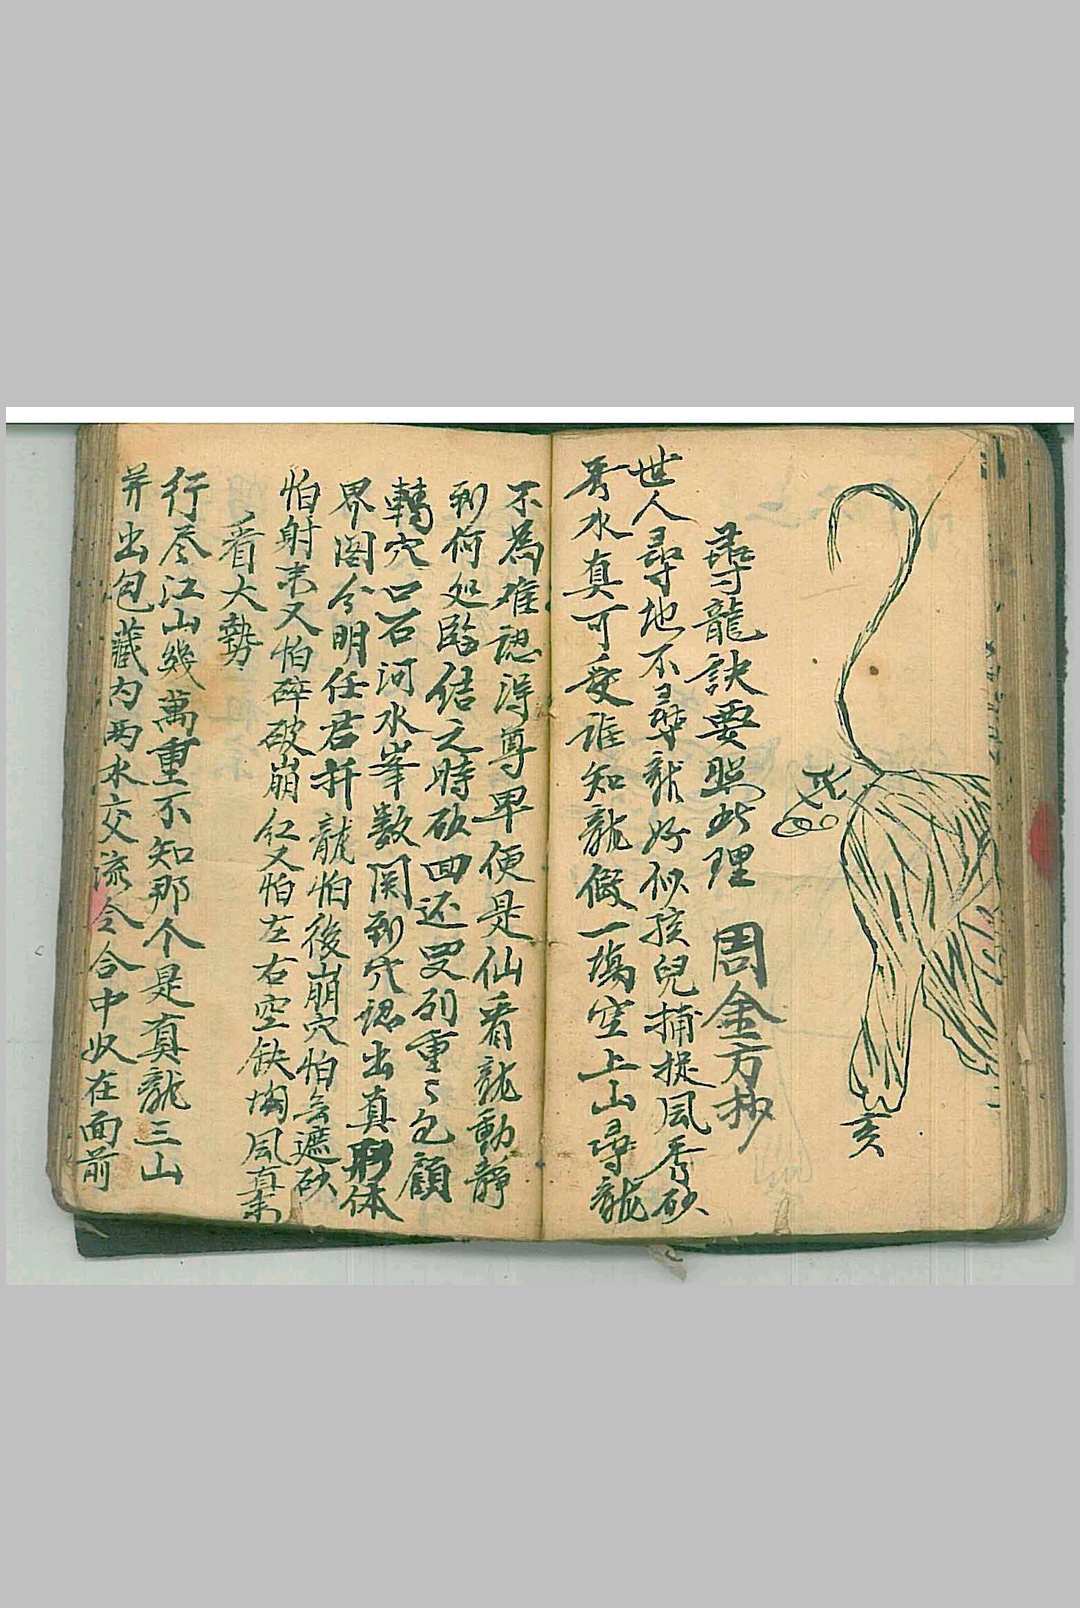 戌
亥
尋龍訣要照此理 周金方抄
世人尋地不尋龍好似孩兒捕捉風秀砂
秀水真可愛誰知龍做一塲空上山尋龍
不為难認得尊卑便是仙看龍動靜
到何処臨結之時砍回还要列重重包顧
轉穴口石河水峯数関到穴認出真形体
界图分明任君扦龍怕後崩穴怕無遮砂
怕射来又怕碎破崩紅又怕左右空缺塲風真
看大勢
行尽江山幾萬重不知那个是真龍三山
并出包藏內两水交流合中奴在面前